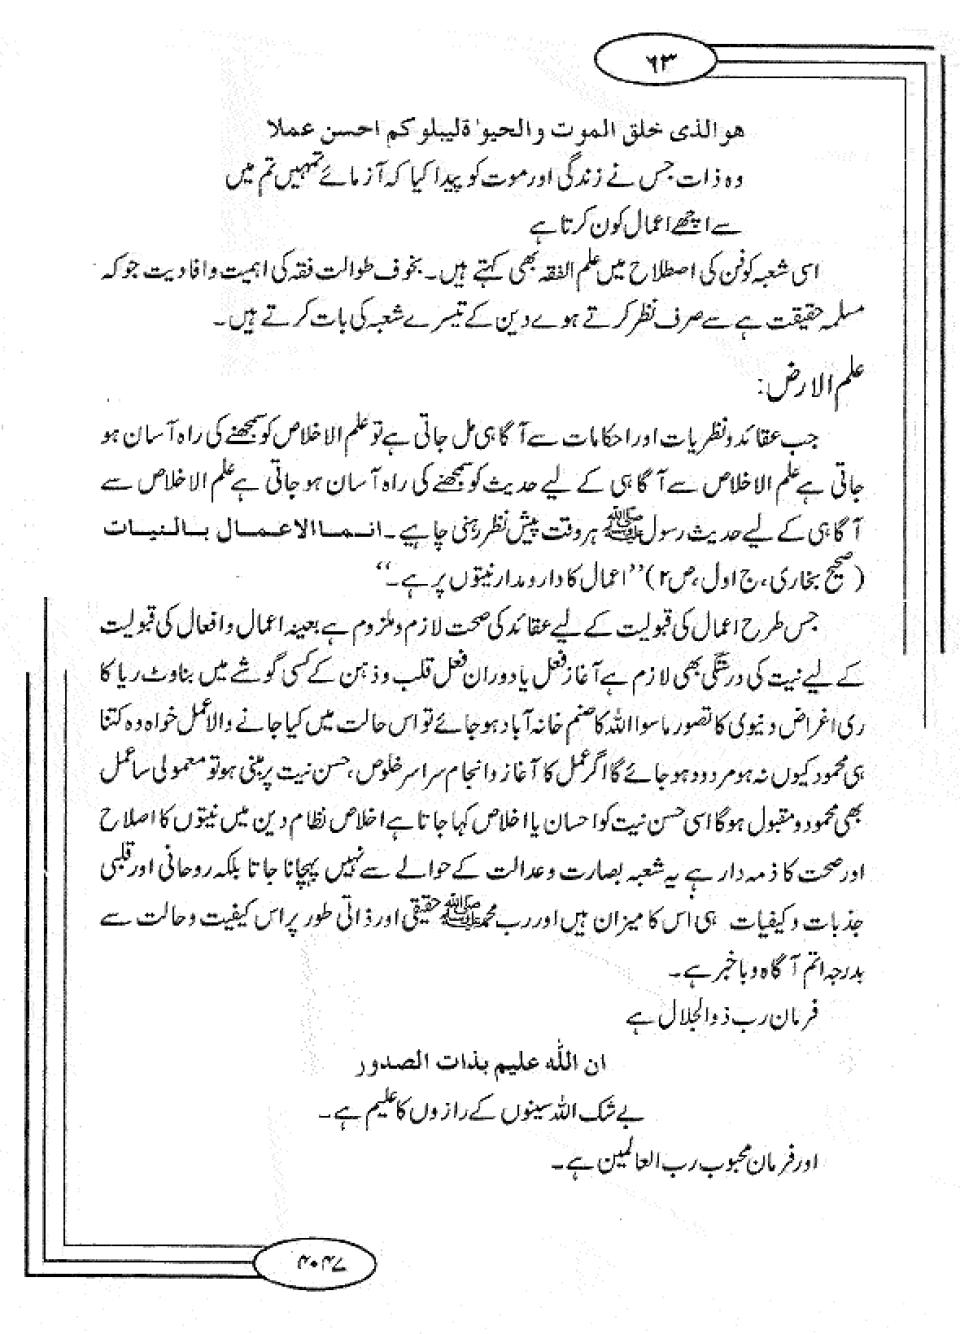 ۶۳
هو الذی خلق الموت والحیوٰة لیبلوکم احسن عملا
وہ ذات جس نے زندگی اور موت کو پیدا کیا کہ آزمائے تمہیں تم میں
سے اچھے اعمال کون کرتا ہے
اسی شعبہ کو فن کی اصطلاح میں علم الفقہ بھی کہتے ہیں۔ بخوف طوالت فقہ کی اہمیت و افادیت جو کہ
مسلمہ حقیقت ہے سے صرف نظر کرتے ہوے دین کے تیسرے شعبہ کی بات کرتے ہیں۔
علم الارض:
جب عقائد و نظریات اور احکامات سے آگاہی مل جاتی ہے تو علم الاخلاص کو سمجھنے کی راہ آسان ہو
جاتی ہے علم الاخلاص سے آگاہی کے لیے حدیث کو سمجھنے کی راہ آسان ہو جاتی ہے علم الاخلاص سے
آگاہی کے لیے حدیث رسول ﷺ ہر وقت پیش نظر رہنی چاہیے۔ انما الاعمال بالنیات
(صحیح بخاری، ج اول، ص ۲) ’’اعمال کا دارومدار نیتوں پر ہے۔‘‘
جس طرح اعمال کی قبولیت کے لیے عقائد کی صحت لازم و ملزوم ہے بعینہ اعمال و افعال کی قبولیت
کے لیے نیت کی درستگی بھی لازم ہے آغاز فعل یا دوران فعل قلب و ذہن کے کسی گوشے میں بناوٹ ریا کا
ری اغراض دنیوی کا تصور ماسوا اللہ کا صنم خانہ آباد ہو جائے تو اس حالت میں کیا جانے والا عمل خواہ وہ کتنا
ہی محمود کیوں نہ ہو مردود ہو جائے گا اگر عمل کا آغاز و انجام سراسر خلوص، حسن نیت پر مبنی ہو تو معمولی سا عمل
بھی محمود و مقبول ہو گا اسی حسن نیت کو احسان یا اخلاص کہا جاتا ہے اخلاص نظام دین میں نیتوں کا اصلاح
اور صحت کا ذمہ دار ہے یہ شعبہ بصارت و عدالت کے حوالے سے نہیں پہچانا جاتا بلکہ روحانی اور قلبی
جذبات و کیفیات ہی اس کا میزان ہیں اور رب محمد ﷺ حقیقی اور ذاتی طور پر اس کیفیت و حالت سے
بدرجہ اتم آگاہ و باخبر ہے۔
فرمان رب ذوالجلال ہے
ان اللّٰه علیم بذات الصدور
بے شک اللہ سینوں کے رازوں کا علیم ہے۔
اور فرمان محبوب رب العالمین ہے۔